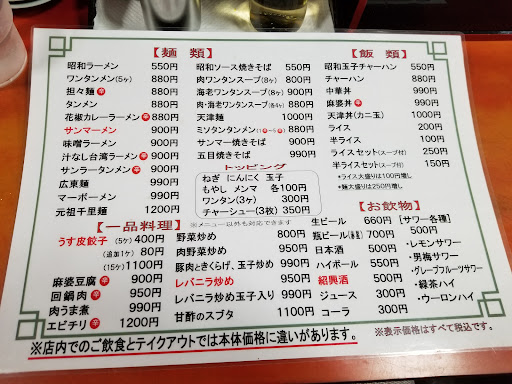 【麺類】
昭和ラーメン 550円
ワンタンメン(5ヶ) 880円
担々麺 辛 880円
タンメン 880円
花椒カレーラーメン 辛 880円
サンマーメン 880円
味噌ラーメン 900円
汁なし台湾ラーメン 辛 900円
サンラータンメン 辛 950円
広東麺 990円
マーボーメン 990円
元祖千里麺 1200円
昭和ソース焼きそば 550円
肉ワンタンスープ(8ヶ) 800円
海老ワンタンスープ(8ヶ) 900円
肉・海老ワンタンスープ(各4ヶ) 880円
天津麺 1000円
ミソタンタンメン 880円
サンマー焼きそば 900円
五目焼きそば 990円
トッピング
ねぎ にんにく 玉子
もやし メンマ 各100円
ワンタン(3ヶ) 300円
チャーシュー(3枚) 350円
【飯類】
昭和玉子チャーハン 550円
チャーハン 880円
中華丼 990円
麻婆丼 辛 990円
天津丼(カニ玉) 1000円
ライス 200円
半ライス 100円
ライスセット(スープ付) 250円
半ライスセット(スープ付) 150円
*ライス大盛りは100円増し
*麺大盛りは250円増し
【一品料理】
※メニュー以外も対応できます
うす皮餃子 (5ヶ) 400円
(追加1ヶ) 80円
(15ヶ) 1100円
麻婆豆腐 辛 900円
回鍋肉 辛 950円
肉うま煮 990円
エビチリ 辛 1200円
野菜炒め 800円
肉野菜炒め 950円
豚肉ときくらげ、玉子炒め 990円
レバニラ炒め 950円
レバニラ炒め玉子入り 990円
甘酢のスブタ 1100円
【お飲物】
生ビール 660円
瓶ビール 700円
日本酒 500円
ハイボール 550円
紹興酒 500円
ジュース 300円
コーラ 300円
[サワー各種] 500円
・レモンサワー
・男梅サワー
・グレープフルーツサワー
・緑茶ハイ
・ウーロンハイ
※店内でのご飲食とテイクアウトでは本体価格に違いがあります。
※表示価格はすべて税込です。